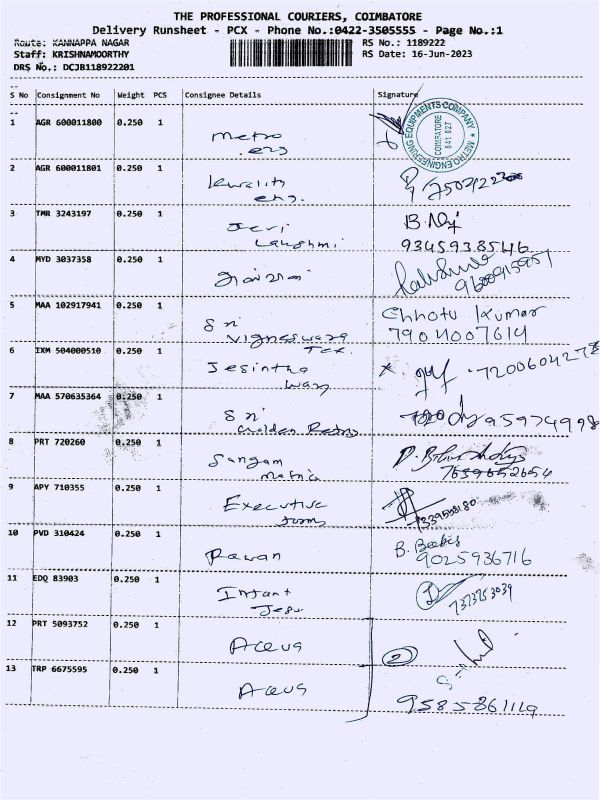 THE PROFESSIONAL COURIERS, COIMBATORE
Delivery Runsheet - PCX - Phone No.:0422-3505555 - Page No.:1
Route: KANNAPPA NAGAR
RS No.: 1189222
Staff: KRISHNAMOORTHY
RS Date: 16-Jun-2023
DRS No.: DCJB118922201
S No Consignment No Weight PCS Consignee Details Signature
1 AGR 600011800 0.250 1 Metro
eng
METRO ENGINEERING EQUIPMENTS COMPANY
COIMBATORE
641 027
2 AGR 600011801 0.250 1 Kwality
eng.
3 TMR 3243197 0.250 1
Lakshmi
9345938546
4 MYD 3037358 0.250 1
9600915957
5 MAA 102917941 0.250 1 Sri Chhotu Kumar
Vigneswara Tex 7904007614
6 IXM 504000510 0.250 1 Jesintha 7200604272
Mary
7 MAA 570635364 0.250 1 Sri
Golden
8 PRT 720260 0.250 1 Sangam
7639652654
9 APY 710355 0.250 1 Executive
10 PVD 310424 0.250 1 Pawan B.
9025936716
11 EDQ 83903 0.250 1 Infant
Jesu 7373753039
12 PRT 5093752 0.250 1 2
13 TRP 6675595 0.250 1
9585861119